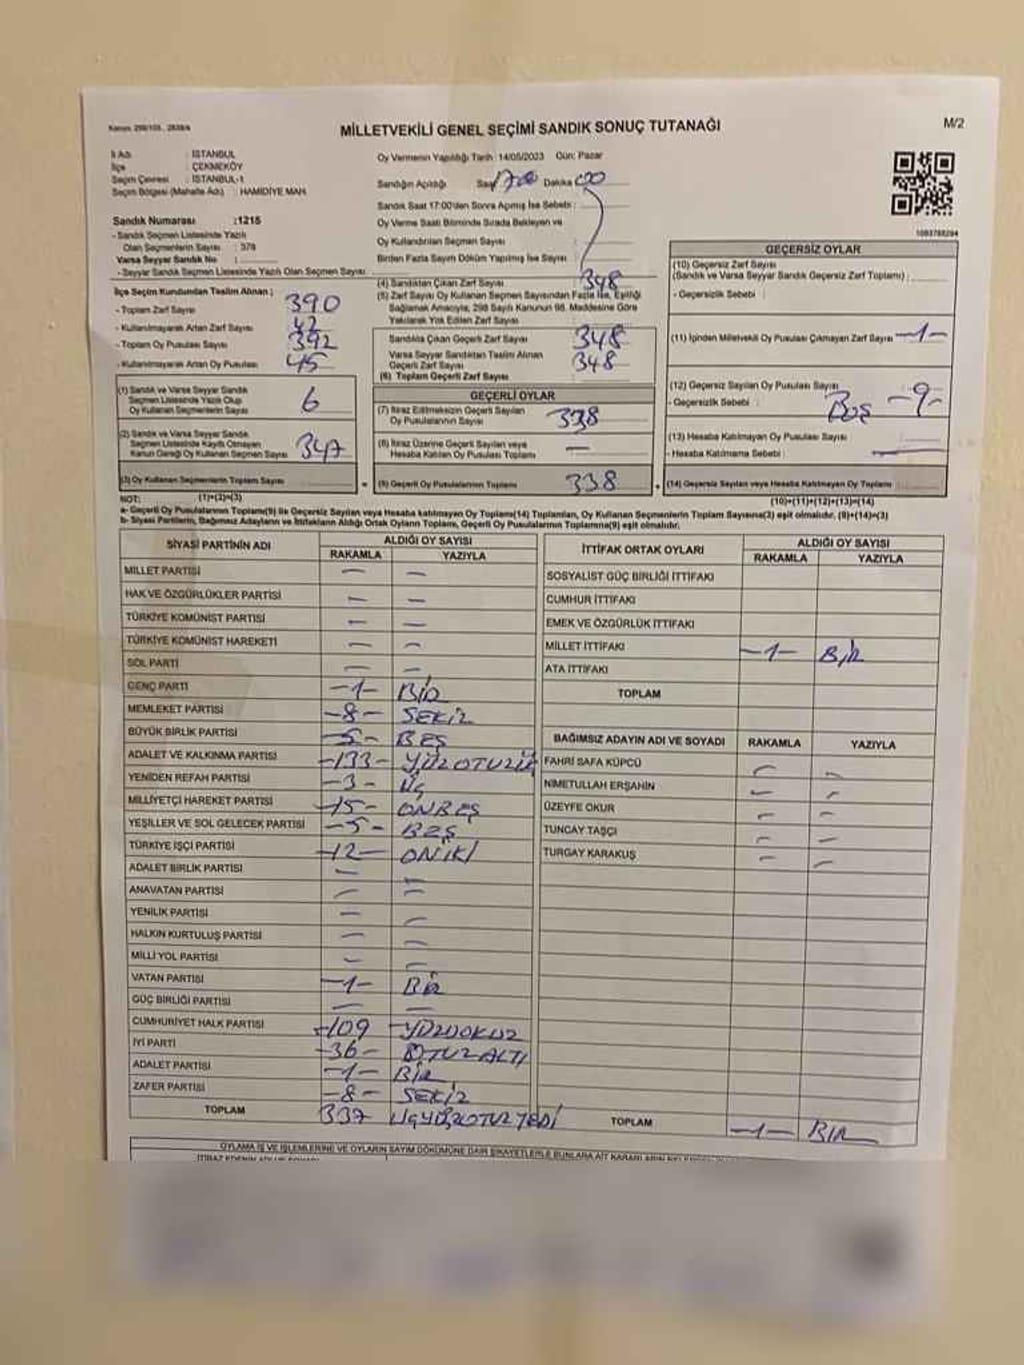 MİLLETVEKİLİ GENEL SEÇİMİ SANDIK SONUÇ TUTANAĞI
M/2
İl Adı : İSTANBUL
İlçe : ÇEKMEKÖY
Seçim Çevresi : İSTANBUL-1
Seçim Bölgesi (Mahalle Adı) : HAMİDİYE MAH
Sandık Numarası :1215
- Sandık Seçmen Listesinde Yazılı
Olan Seçmenlerin Sayısı : 378
Varsa Seyyar Sandık No :
- Seyyar Sandık Seçmen Listesinde Yazılı Olan Seçmen Sayısı :
Oy Vermenin Yapıldığı Tarih : 14/05/2023 Gün: Pazar
Sandığın Açıldığı Saat Dakika
Sandık Saat 17:00'den Sonra Açılmış İse Sebebi :
Oy Verme Saati Bitiminde Sırada Bekleyen ve
Oy Kullandırılan Seçmen Sayısı :
Birden Fazla Sayım Döküm Yapılmış İse Sayısı :
(4) Sandıktan Çıkan Zarf Sayısı : 348
(5) Zarf Sayısı Oy Kullanan Seçmen Sayısından Fazla İse, Eşitliği
Sağlamak Amacıyla; 298 Sayılı Kanunun 98. Maddesine Göre
Yakılarak Yok Edilen Zarf Sayısı :
İlçe Seçim Kurulundan Teslim Alınan ;
- Toplam Zarf Sayısı : 390
- Kullanılmayarak Artan Zarf Sayısı : 42
- Toplam Oy Pusulası Sayısı : 392
- Kullanılmayarak Artan Oy Pusulası : 45
(1) Sandık ve Varsa Seyyar Sandık
Seçmen Listesinde Yazılı Olup
Oy Kullanan Seçmenlerin Sayısı : 6
(2) Sandık ve Varsa Seyyar Sandık
Seçmen Listesinde Kayıtlı Olmayan
Kanun Gereği Oy Kullanan Seçmen Sayısı : 347
(3) Oy Kullanan Seçmenlerin Toplam Sayısı
(1)+(2)=(3)
Sandıkta Çıkan Geçerli Zarf Sayısı : 348
Varsa Seyyar Sandıktan Teslim Alınan
Geçerli Zarf Sayısı : 348
(6) Toplam Geçerli Zarf Sayısı :
GEÇERLİ OYLAR
(7) İtiraz Edilmeksizin Geçerli Sayılan
Oy Pusulalarının Sayısı : 338
(8) İtiraz Üzerine Geçerli Sayılan veya
Hesaba Katılan Oy Pusulası Toplamı : —
(9) Geçerli Oy Pusulalarının Toplamı : 338
GEÇERSİZ OYLAR
(10) Geçersiz Zarf Sayısı
(Sandık ve Varsa Seyyar Sandık Geçersiz Zarf Toplamı) :
- Geçersizlik Sebebi :
(11) İçinden Milletvekili Oy Pusulası Çıkmayan Zarf Sayısı : -1-
(12) Geçersiz Sayılan Oy Pusulası Sayısı : -9-
- Geçersizlik Sebebi : Boş
(13) Hesaba Katılmayan Oy Pusulası Sayısı :
- Hesaba Katılmama Sebebi :
(14) Geçersiz Sayılan veya Hesaba Katılmayan Oy Pusulası Toplamı :
(10)+(11)+(12)+(13)=(14)
NOT:
a- Geçerli Oy Pusulalarının Toplamı(9) ile Geçersiz Sayılan veya Hesaba katılmayan Oy Toplamı(14) Toplamları, Oy Kullanan Seçmenlerin Toplam Sayısına(3) eşit olmalıdır. (9)+(14)=(3)
b- Siyasi Partilerin, Bağımsız Adayların ve İttifakların Aldığı Ortak Oyların Toplamı, Geçerli Oy Pusulalarının Toplamına(9) eşit olmalıdır.
SİYASİ PARTİNİN ADI ALDIĞI OY SAYISI
RAKAMLA YAZIYLA
MİLLET PARTİSİ — —
HAK VE ÖZGÜRLÜKLER PARTİSİ — —
TÜRKİYE KOMÜNİST PARTİSİ — —
TÜRKİYE KOMÜNİST HAREKETİ — —
SOL PARTİ — —
GENÇ PARTİ -1- BİR
MEMLEKET PARTİSİ -8- SEKİZ
BÜYÜK BİRLİK PARTİSİ -5- BEŞ
ADALET VE KALKINMA PARTİSİ -133-
YENİDEN REFAH PARTİSİ -3- ÜÇ
MİLLİYETÇİ HAREKET PARTİSİ -15- ONBEŞ
YEŞİLLER VE SOL GELECEK PARTİSİ -5- BEŞ
TÜRKİYE İŞÇİ PARTİSİ -12- ONİKİ
ADALET BİRLİK PARTİSİ — —
ANAVATAN PARTİSİ — —
YENİLİK PARTİSİ — —
HALKIN KURTULUŞ PARTİSİ — —
MİLLİ YOL PARTİSİ — —
VATAN PARTİSİ -1- BİR
GÜÇ BİRLİĞİ PARTİSİ —
CUMHURİYET HALK PARTİSİ -109 YÜZDOKUZ
İYİ PARTİ -36- OTUZALTI
ADALET PARTİSİ -1- BİR
ZAFER PARTİSİ -8- SEKİZ
TOPLAM 337 ÜÇYÜZOTUZYEDİ
İTTİFAK ORTAK OYLARI ALDIĞI OY SAYISI
RAKAMLA YAZIYLA
SOSYALİST GÜÇ BİRLİĞİ İTTİFAKI
CUMHUR İTTİFAKI
EMEK VE ÖZGÜRLÜK İTTİFAKI
MİLLET İTTİFAKI -1- BİR
ATA İTTİFAKI
TOPLAM
BAĞIMSIZ ADAYIN ADI VE SOYADI RAKAMLA YAZIYLA
FAHRİ SAFA KÜPCÜ — —
NİMETULLAH ERŞAHİN — —
ÜZEYFE OKUR — —
TUNCAY TAŞÇI — —
TURGAY KARAKUŞ — —
TOPLAM -1- BİR
OYLAMA İŞ VE İŞLEMLERİNE VE OYLARIN SAYIM DÖKÜMÜNE DAİR ŞİKAYETLERLE BUNLARA AİT